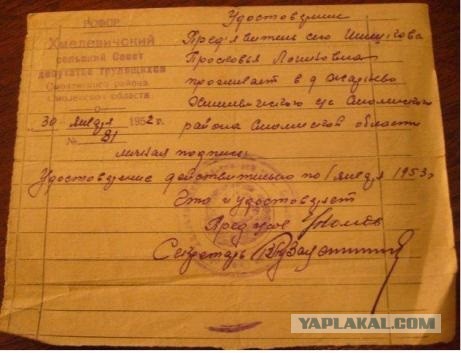 РСФСР
Хмелевичский
сельский Совет
депутатов трудящихся
Смоленского района
Смоленской области
30 января 1952 г.
№ 81
Удостоверение
Предъявитель сего
Просковья
проживает в д
с/с Смоленского
района Смоленской области
личная подпись
Удостоверение действительно по 1 января 1953 г
Что и удостоверяет
Пред
Секретарь
YAPLAKAL.COM